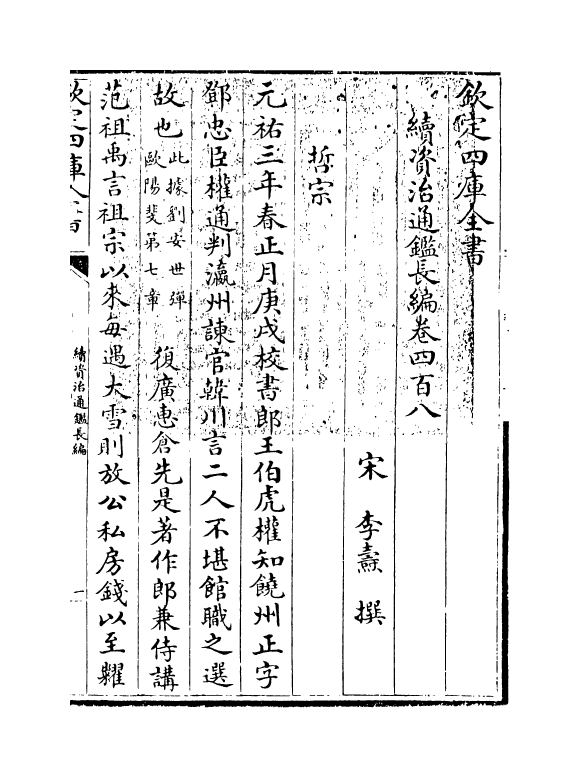 欽定四庫全書
續資治通鑑長編卷四百八
宋 李燾 撰
哲宗
元祐三年春正月庚戌校書郎王伯虎權知饒州正字
鄧忠臣權通判瀛州諫官韓川言二人不堪館職之選
故也此據劉安世彈歐陽棐第七章 復廣惠倉先是著作郎兼侍講
范祖禹言祖宗以來每遇大雪則放公私房錢以至糶
欽定四庫全書
續資治通鑑長編
一